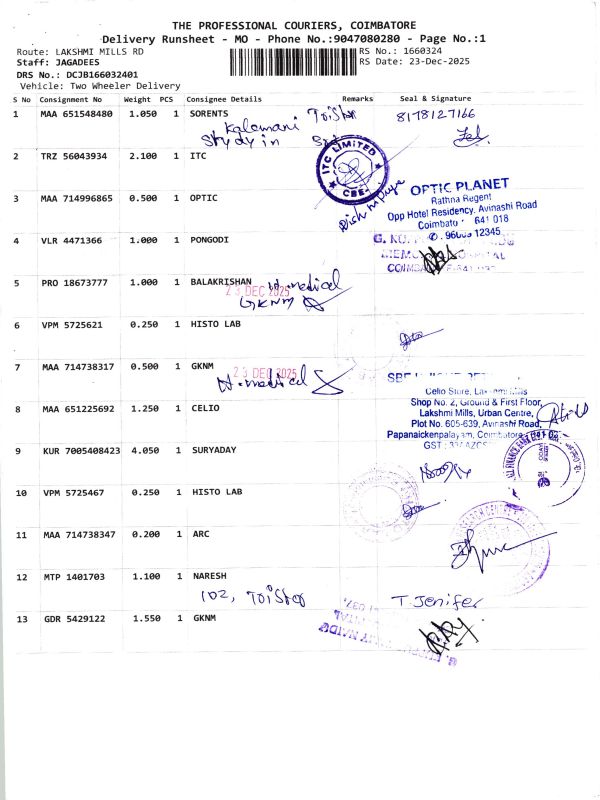 THE PROFESSIONAL COURIERS, COIMBATORE
Delivery Runsheet - MO - Phone No.:9047080280 - Page No.:1
Route: LAKSHMI MILLS RD
RS No.: 1660324
Staff: JAGADEES
RS Date: 23-Dec-2025
DRS No.: DCJB166032401
Vehicle: Two Wheeler Delivery
S No Consignment No Weight PCS Consignee Details Remarks Seal & Signature
1 MAA 651548480 1.050 1 SORENTS 8178127166
Kalamani
Study in
2 TRZ 56043934 2.100 1 ITC
ITC LIMITED
CBE
3 MAA 714996865 0.500 1 OPTIC
OPTIC PLANET
Rathna Regent
Opp Hotel Residency, Avinashi Road
Coimbato 641 018
12345
4 VLR 4471366 1.000 1 PONGODI
5 PRO 18673777 1.000 1 BALAKRISHAN
23 DEC 2025 H. medical
GKNM
6 VPM 5725621 0.250 1 HISTO LAB
7 MAA 714738317 0.500 1 GKNM
23 DEC 2025
H. medical
8 MAA 651225692 1.250 1 CELIO
Celio Store,
Shop No. 2, Ground & First Floor,
Lakshmi Mills, Urban Centre,
Plot No. 605-639, Avinashi Road,
Papanaickenpalayam, Coimbatore
GST
9 KUR 7005408423 4.050 1 SURYADAY
10 VPM 5725467 0.250 1 HISTO LAB
11 MAA 714738347 0.200 1 ARC
12 MTP 1401703 1.100 1 NARESH
102, T. Jenifer
13 GDR 5429122 1.550 1 GKNM